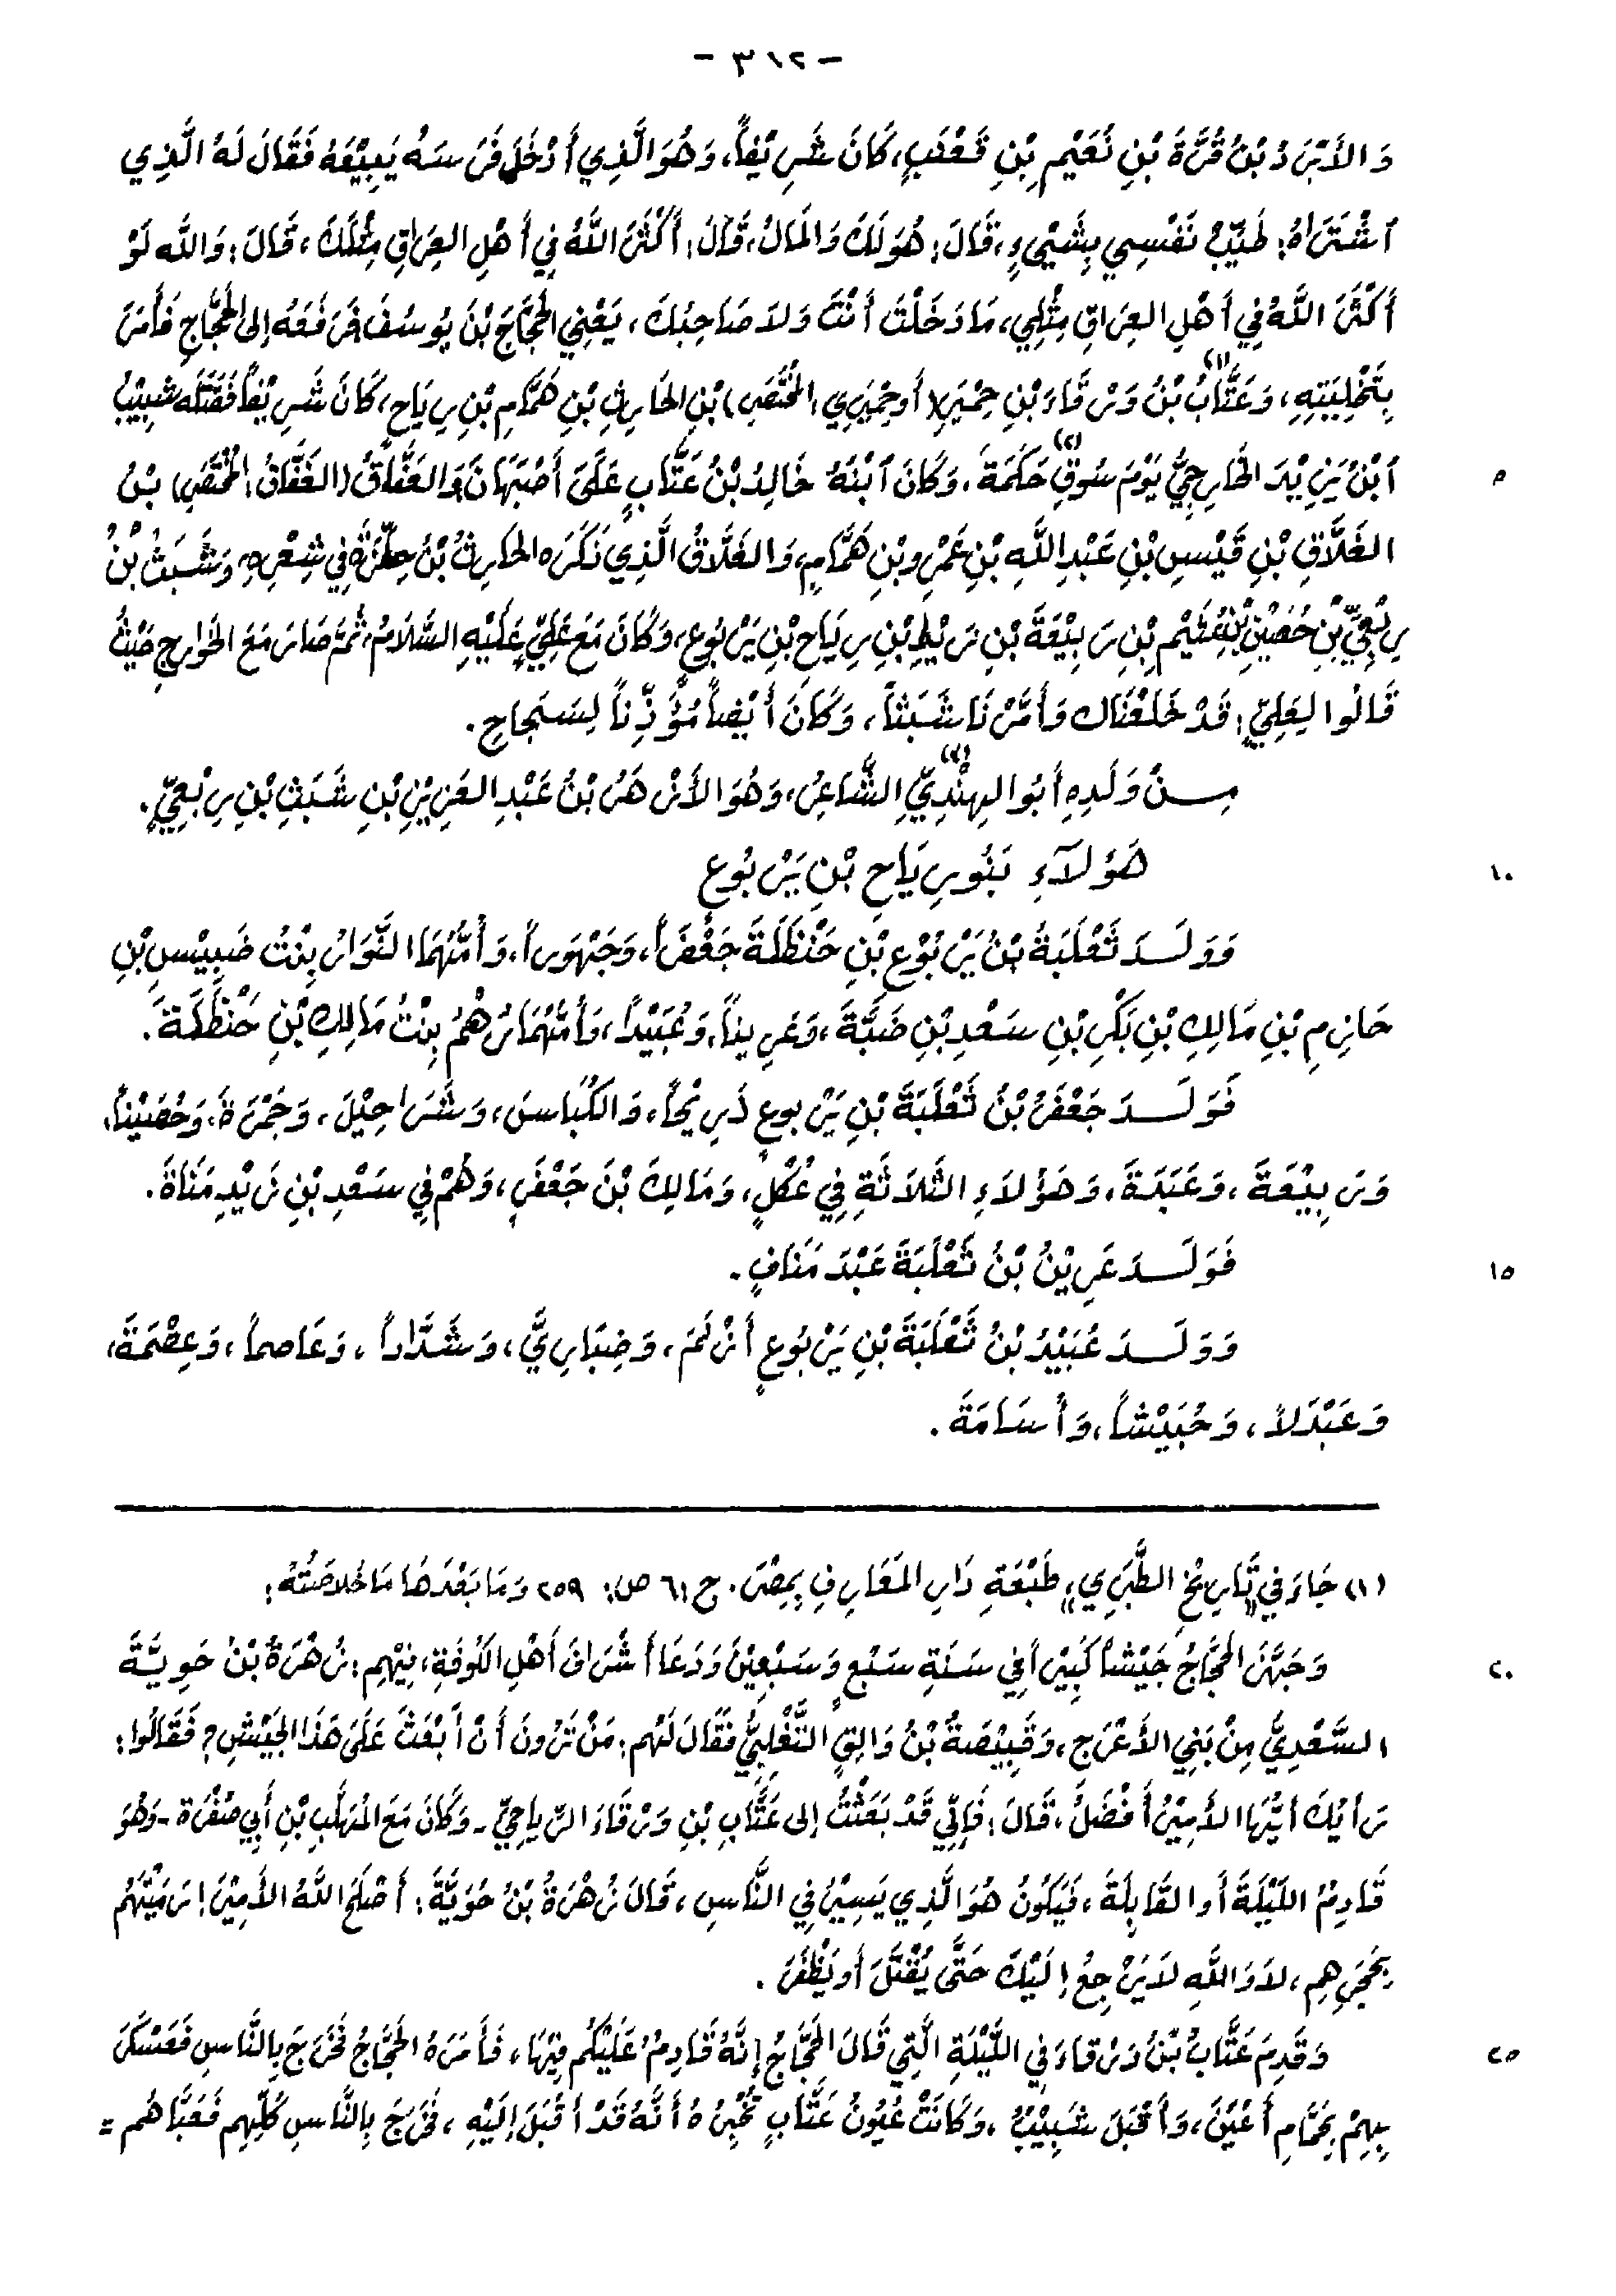 - ٣١٢ -
وَالأَبْرَدُ بْنُ قُرَّةَ بْنِ نُعَيْمِ بْنِ قَعْنَبٍ، كَانَ شَرِيْفاً، وَهُوَ الَّذِي أَدْخَلَ فَرَسَهُ يَبِيْعَهُ فَقَالَ لَهُ الَّذِي
ٱشْتَرَاهُ: طَيِّبْ نَفْسِي بِشَيْيءٍ، قَالَ: هُوَ لَكَ وَالمَالُ، قَالَ: أَكْثَرَ اللَّهُ فِي أَهْلِ العِرَاقِ مِثْلَكَ، قَالَ: وَاللَّه لَوْ
أَكْثَرَ اللَّهُ فِي أَهْلِ العِرَاقِ مِثْلِي، مَا دَخَلْتَ أَنْتَ وَلاَ صَاحِبُكَ، يَعْنِي الحَجَّاجَ بْنَ يُوسُفَ فَرَفَعَهُ إلى الحَجَّاجِ فَأَمَرَ
بِتَخْلِيَتِهِ، وَعَتَّابُ(١) بْنُ وَرْقَاءَ بْنِ حِمْيَرِ (أو حِمْيَرِي: المُخْتَصَرِ) بْنِ الحَارِثِ بْنِ هَمَّامِ بْنِ رِيَاحٍ، كَانَ شَرِيْفاً فَقَتَلَه شَبِيْبُ
ٱبْنُ يَزِيْدَ الخَارِجِيُّ يَوْمَ سُوقِ(٢) حَكَمَةَ، وَكَانَ ٱبْنُهُ خَالِدُ بْنُ عَتَّابٍ عَلَىَ أَصْبَهَانَ، وَالعَفَّاقُ (الغَفَّاقُ: المُخْتَصَرِ) بْنُ
الغَلَّاقِ بْنِ قَيْسِ بْنِ عَبْدِ اللَّهِ بْنِ عَمْرِو بْنِ هَمَّامٍ، وَالغَلَّاقُ الَّذِي ذَكَرَه الحَارِثُ بْنُ حِلِّزَةَ فِي شِعْرِهِ، وَشَبَثُ بْنُ
رِبْعِيِّ بْنِ حُصَيْنِ بْنِ عُثَيْمِ بْنِ رَبِيْعَةَ بْنِ زَيْدِ بْنِ رِيَاحِ بْنِ يَرْبُوعٍ، وَكَانَ مَعَ عَلِيٍّ عَلَيْهِ السَّلَامُ، ثُمَّ صَارَ مَعَ الخَوارِجِ حَيْثُ
قَالُوا لِعَلِيٍّ: قَدْ خَلَعْنَاك وَأَمَّرْنَا شَبَثاً، وَكَانَ أَيْضاً مُؤَذِّناً لِسَجَاحِ.
مِنْ وَلَدِهِ أَبُو الهِنْدِيِّ(٣) الشَّاعِرُ، وَهُوَ الأَزْهَرُ بْنُ عَبْدِ العَزِيْزِ بْنِ شَبَثِ بْنِ رِبْعِيٍّ.
هَؤُلاَءِ بَنُو رِيَاحِ بْنِ يَرْبُوعِ
وَوَلَدَ ثَعْلَبَةُ بْنُ يَرْبُوْعِ بْنِ حَنْظَلَةَ جَعْفَراً، وَجَهْوَراً، وَأُمُّهُمَا النَّوَارُ بِنْتُ ضَبِيْسِ بْنِ
حَازِمِ بْنِ مَالِكِ بْنِ بَكْرِ بْنِ سَعْدِ بْنِ ضَبَّةَ، وَعَرِيناً، وَعُبَيْدًا، وَأُمُّهُمَا رُهْمُ بِنْتُ مَالِكِ بْنِ حَنْظَلَةَ.
فَوَلَدَ جَعْفَرُ بْنُ ثَعْلَبَةَ بْنِ يَرْبوعٍ ذَرِيْحاً، وَالكُبَاسَ، وَشَرَاحِيْلَ، وَجَمْرَةَ، وَحُصَيْناً،
وَرَبِيْعَةَ، وَعَبَدَةَ، وَهَؤُلاَءِ الثَّلاَثَةِ فِي عُكْلٍ، وَمَالِكَ بْنَ جَعْفَرٍ، وَهُمْ فِي سَعْدِ بْنِ زَيْدِ مَنَاةَ.
فَوَلَدَ عَرِيْنُ بْنُ ثَعْلَبَةَ عَبْدَ مَنَافٍ.
وَوَلَدَ عُبَيْدُ بْنُ ثَعْلَبَةَ بْنِ يَرْبُوعٍ أَزْنَمَ، وَضِبَارِيَّ، وَشَدَّاداً، وَعَاصماً، وَعِصْمَةَ،
وَعَبْدَلاً، وَحُبَيْشاً، وَأُسَامَةَ.
(١) جَاءَ فِي «تَارِيْخِ الطَّبَرِي» طَبْعَةِ دَارِ المَعَارِفِ بِمِصْرَ. ج ٦١ ص: ٢٥٩ وَمَا بَعْدَهَا مَا خُلاَصَتُهُ:
وَجَهَّزَ الحَجَّاجُ جَيْشاً كَبِيْراً فِي سَنَةِ سَبْعٍ وَسَبْعِيْنَ وَدَعَا أَشْرَافَ أَهْلِ الكُوفَةِ، فِيْهِم: زُهْرَةُ بْنُ حَوِيَّةَ
السَّعْدِيُّ مِنْ بَنِي الأَعْرَجِ، وَقَبِيْصَةُ بْنُ وَالِقٍ التَّغْلِبِيُّ فَقَالَ لَهُم: مَنْ تَرَونَ أَنْ أَبْعَثَ عَلَىَ هَذَا الجَيْشِ؟ فَقَالُوا:
رَأْيُكَ أَيُّهَا الأَمِيْرُ أَفْضَلُ، قَالَ: فَإِنِّي قَدْ بَعَثْتُ إلى عَتَّابِ بْنِ وَرْقَاءَ الرِّيَاحِيِّ - وَكَانَ مَعَ المُهَلَّبِ بْنِ أَبِي صُفْرَة - وَهُوَ
قَادِمٌ اللَيْلَةَ أَو القَابِلَةَ، فَيَكُونُ هُوَ الَّذِي يَسِيْرُ فِي النَّاسِ، قَالَ زُهْرَةُ بْنُ حُوَيَّةَ: أَصْلَحَ اللَّهُ الأَمِيْرَ! رَمَيْتَهُم
بِحَجَرِهِم، لاَ وَاللَّهِ لاَ يَرْجِعُ إلَيْكَ حَتَّى يُقْتَلَ أَو يَظْفَرَ.
وَقَدِمَ عَتَّابُ بْنُ وَرْقاءَ فِي اللَّيْلَةِ الَّتِي قَالَ الحَجَّاجُ إِنَّهُ قَادِمٌ عَلَيْكُم فِيْهَا، فَأَمَرَهُ الحَجَّاجُ فَخَرَجَ بِالنَّاسِ فَعَسْكَرَ
بِهِمْ بِحَمَّامِ أَعْيَنَ، وَأَقْبَلَ شَبِيْبٌ، وَكَانَتْ عُيُونُ عَتَّابٍ تُخْبِرُهُ أَنَّهُ قَدْ أَقْبَلَ إِلَيْهِ، فَخَرَجَ بِالنَّاسِ كُلِّهِم فَعَبَّاهُم =
٥
١٠
١٥
٢٠
٢٥